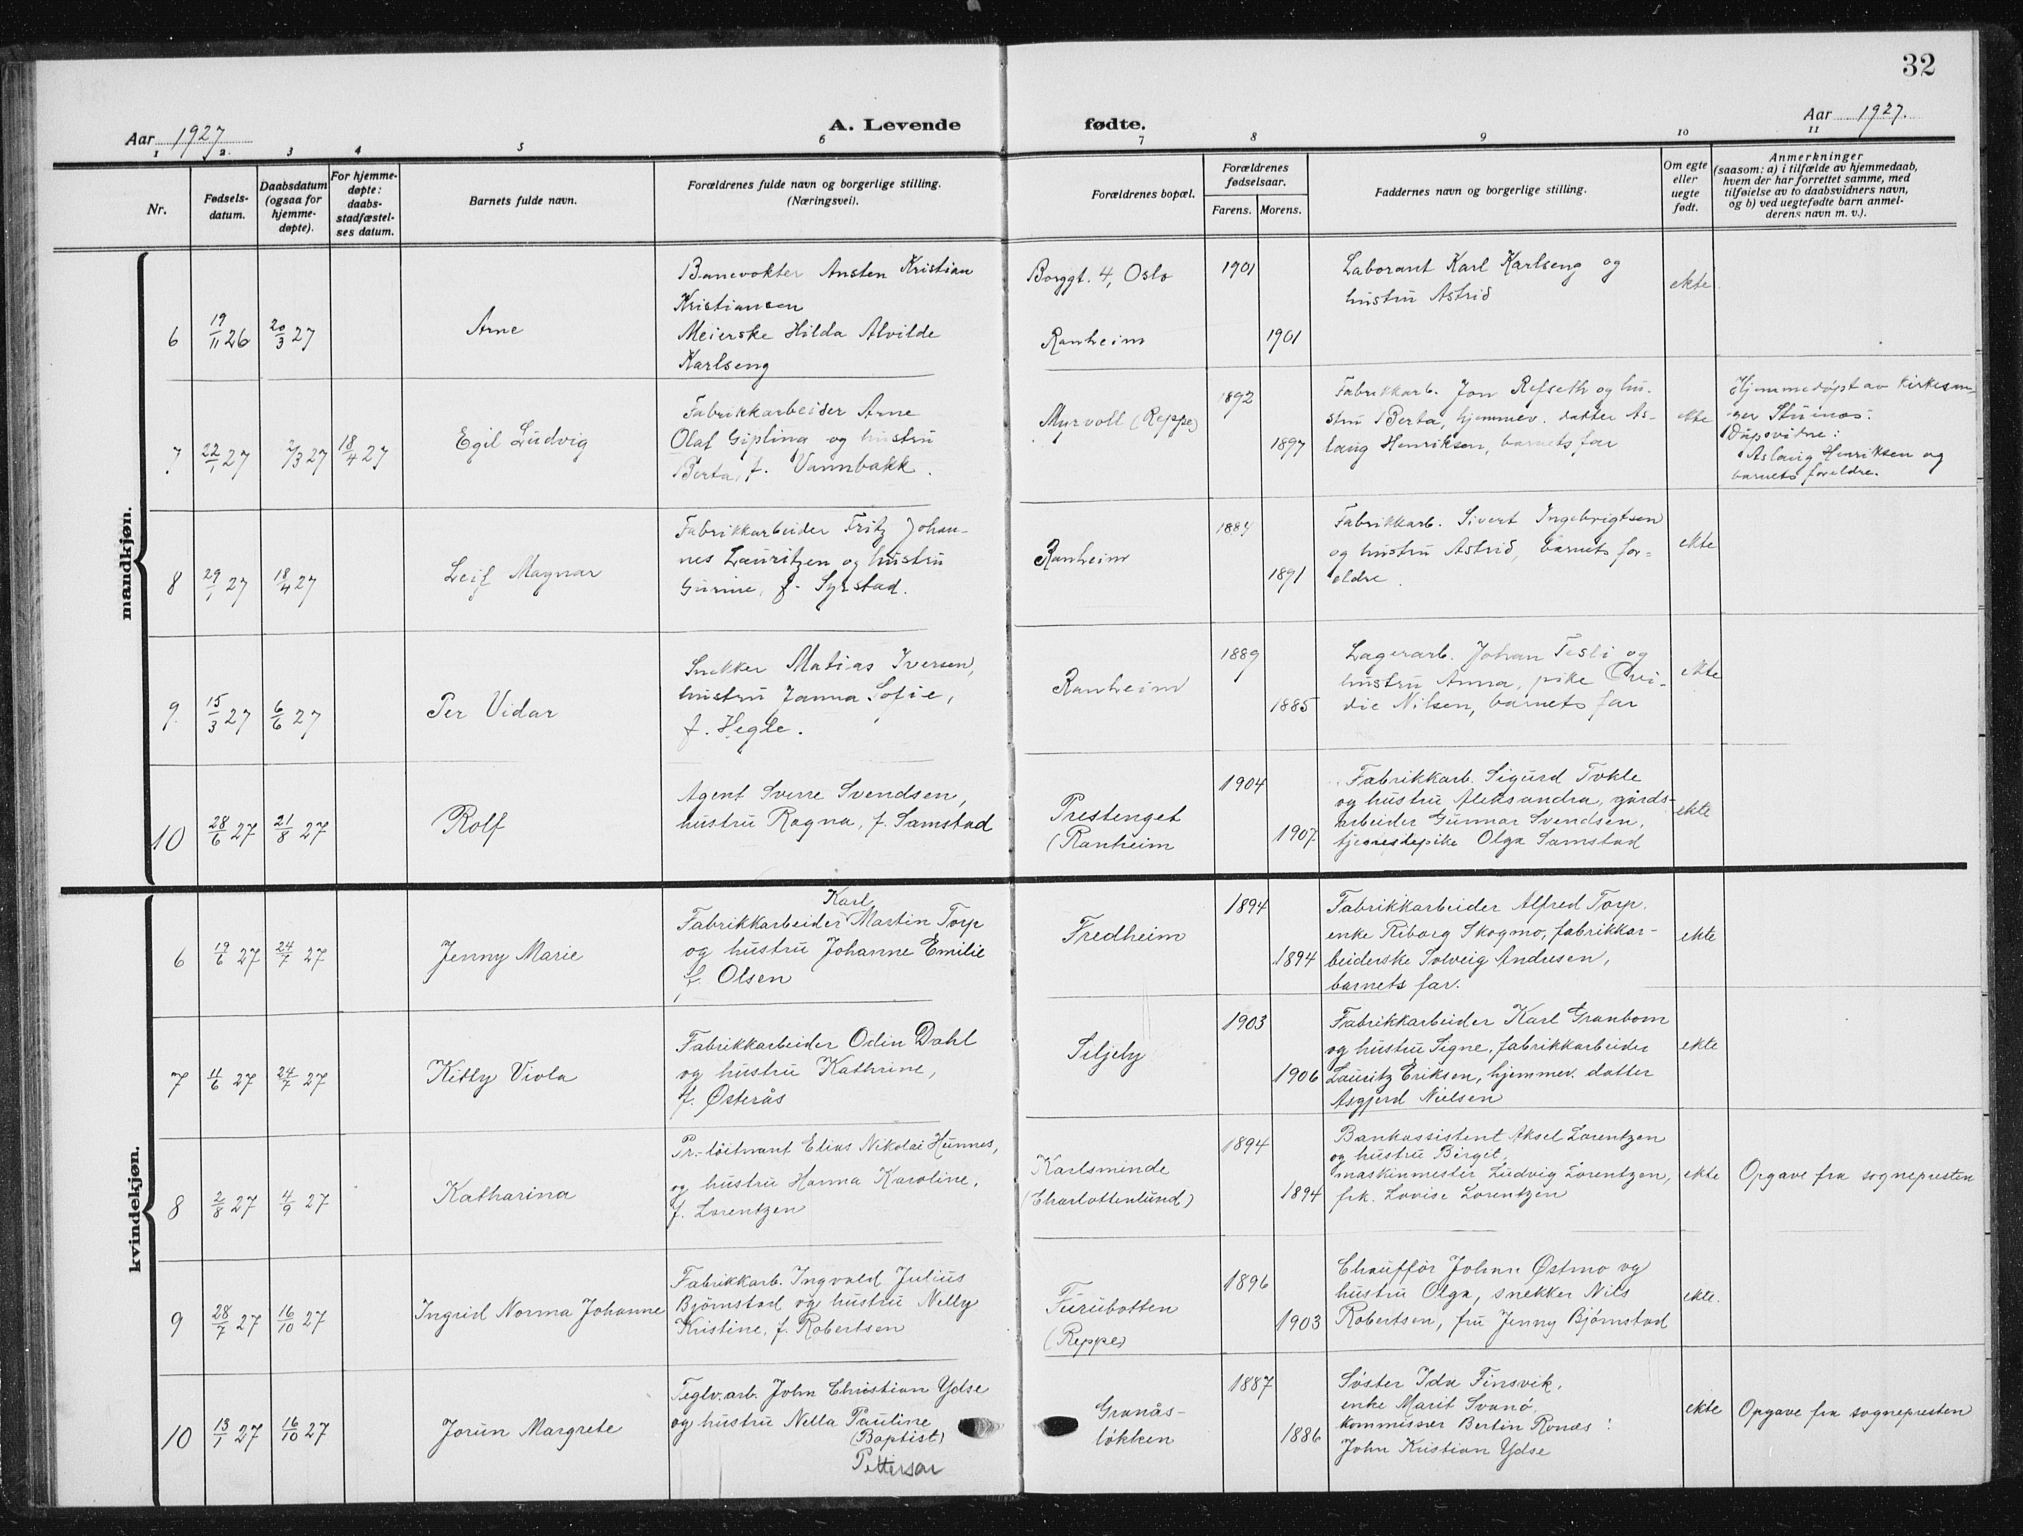 32
Aar 1927
A. Levende
fødte.
Aar 1927.
1 2. 3 4 5 6 7 8 9 10 11
Nr.
Fødsels-
datum.
Daabsdatum
(ogsaa for
hjemme-
døpte).
For hjemme-
døpte:
daabs-
stadfæstel-
ses datum.
Barnets fulde navn.
Forældrenes fulde navn og borgerlige stilling.
(Næringsvei).
Forældrenes bopæl.
Forældrenes
fødselsaar.
Farens. Morens.
Faddernes navn og borgerlige stilling.
Om egte
eller
uegte
født.
Anmerkninger
(saasom: a) i tilfælde av hjemmedaab,
hvem der har forrettet samme, med
tilføielse av to daabsvidners navn,
og b) ved uegtefødte barn anmel-
derens navn m. v.).
mandkjøn.
6
19/11 26
20/3 27
Arne
Banevokter Ansten Kristian
Kristiansen
Meierske Hilda Alvilde
Karlseng
Borggt. 4, Oslo
Ranheim
1901
1901
Laborant Karl Karlseng og
hustru Astrid
ekte
7
22/1 27
2/3 27
18/4 27
Egil Ludvig
Fabrikkarbeider Arne
Olaf Gipling og hustru
Berta, f. Vannbakk.
Myrvoll (Reppe)
1892
1897
Fabrikkarb. Jon Refseth og hu-
stru Berta, hjemmev. datter As-
laug Henriksen, barnets far
ekte
Hjemmedøpt av kirkesan-
ger Stuenes.
Dåpsvidne:
Aslaug Henriksen og
barnets foreldre.
8
29/1 27
18/4 27
Leif Magnar
Fabrikkarbeider Fritz Johan-
nes Lauritzen og hustru
Gurine, f. Syrstad.
Ranheim
1884
1891
Fabrikkarb. Sivert Ingebrigtsen
og hustru Astrid, barnets for-
eldre.
ekte
9.
15/3 27
6/6 27
Per Vidar
Snekker Matias Iversen,
hustru Janna Sofie,
f. Hegle.
Ranheim
1889
1885
Lagerarb. Johan Tesli og
hustru Anna, pike Ovi-
die Nilsen, barnets far
ekte
10
28/6 27
21/8 27
Rolf
Agent Sverre Svendsen,
hustru Ragna, f. Samstad
Prestenget
(Ranheim
1904
1907.
Fabrikkarb. Sigurd Tokle
og hustru Aleksandra, gårds-
arbeider Gunnar Svendsen,
tjenestepike Olga Samstad
ekte
kvindekjøn.
6
19/6 27
24/7 27
Jenny Marie
Karl
Fabrikkarbeider Martin Torp
og hustru Johanne Emilie
f. Olsen
Fredheim
1894
1894
Fabrikkarbeider Alfred Torp.
enke Riborg Skogmo, fabrikkar-
beiderske Solveig Andresen,
barnets far.
ekte
7
11/6 27
24/7 27
Kitty Viola
Fabrikkarbeider Odin Dahl
og hustru Kathrine,
f. Østerås
Siljeby
1903
1906
Fabrikkarbeider Karl Granbom
og hustru Signe, fabrikkarbeider
Lauritz Eriksen, hjemmev. datter
Asgjerd Nielsen
ekte
8
2/8 27
4/9 27
Katharina
Pr.-løitnant Elias Nikolai Hunnes,
og hustru Hanna Karoline,
f. Lorentzen
Karlsminde
(Charlottenlund)
1894
1894
Bankassistent Aksel Lorentzen
og hustru Birget,
maskinmester Ludvig Lorentzen,
frk. Lovise Lorentzen
ekte
Opgave fra sognepresten
9
28/7 27
16/10 27
Ingrid Norma Johanne
Fabrikkarb. Ingvald Julius
Bjørnstad og hustru Nelly
Kristine, f. Robertsen
Furubotten
(Reppe)
1896
1903
Chauffør Johan Østmo og
hustru Olga, snekker Nils
Robertsen, fru Jenny Bjørnstad
ekte.
10
13/7 27
16/10 27
Jorun Margrete
Teglv.arb. John Christian Ydse
og hustru Nella Pauline
(Baptist)
Pettersar
Granås-
løkken
1887
1886
Søster Ida Finsvik,
enke Marit Svanø,
kommisner Bertin Ronæs
John Kristian Ydse
ekte
Opgave fra sognepresten